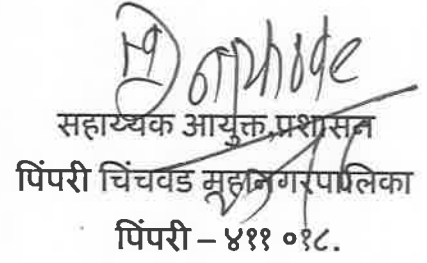 सहाय्यक आयुक्त,प्रशासन
पिंपरी चिंचवड महानगरपालिका
पिंपरी – ४११ ०१८.